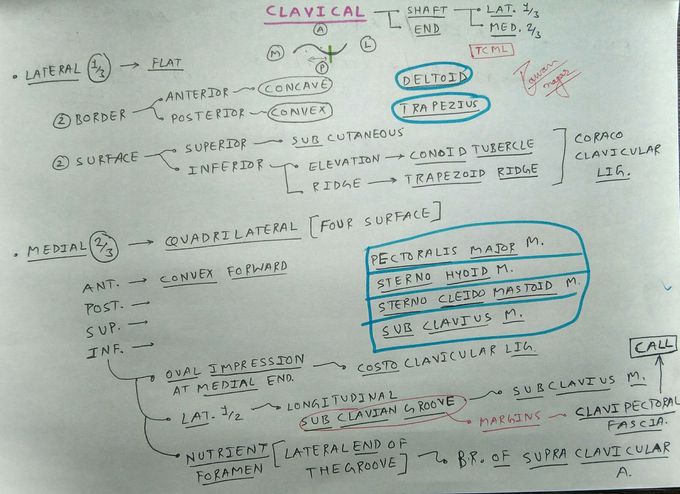 CLAVICAL
SHAFT → LAT. 1/3
END → MED. 2/3
A
M L
P
TCML
Pawan
nagar
• LATERAL 1/3 → FLAT
② BORDER
ANTERIOR → CONCAVE
POSTERIOR → CONVEX
DELTOID
TRAPEZIUS
② SURFACE
SUPERIOR → SUB CUTANEOUS
INFERIOR → ELEVATION → CONOID TUBERCLE
RIDGE → TRAPEZOID RIDGE
CORACO
CLAVICULAR
LIG.
• MEDIAL 2/3 → QUADRILATERAL [FOUR SURFACE]
ANT. → CONVEX FORWARD
POST. →
SUP. →
INF. →
PECTORALIS MAJOR M.
STERNO HYOID M.
STERNO CLEIDO MASTOID M.
SUB CLAVIUS M.
OVAL IMPRESSION
AT MEDIAL END.
COSTO CLAVICULAR LIG.
LAT. 1/2 → LONGITUDINAL
SUB CLAVIAN GROOVE
SUBCLAVIUS M.
MARGINS → CLAVIPECTORAL
FASCIA.
CALL
NUTRIENT
FORAMEN
[LATERAL END OF
THE GROOVE]
BR. OF SUPRA CLAVICULAR
A.